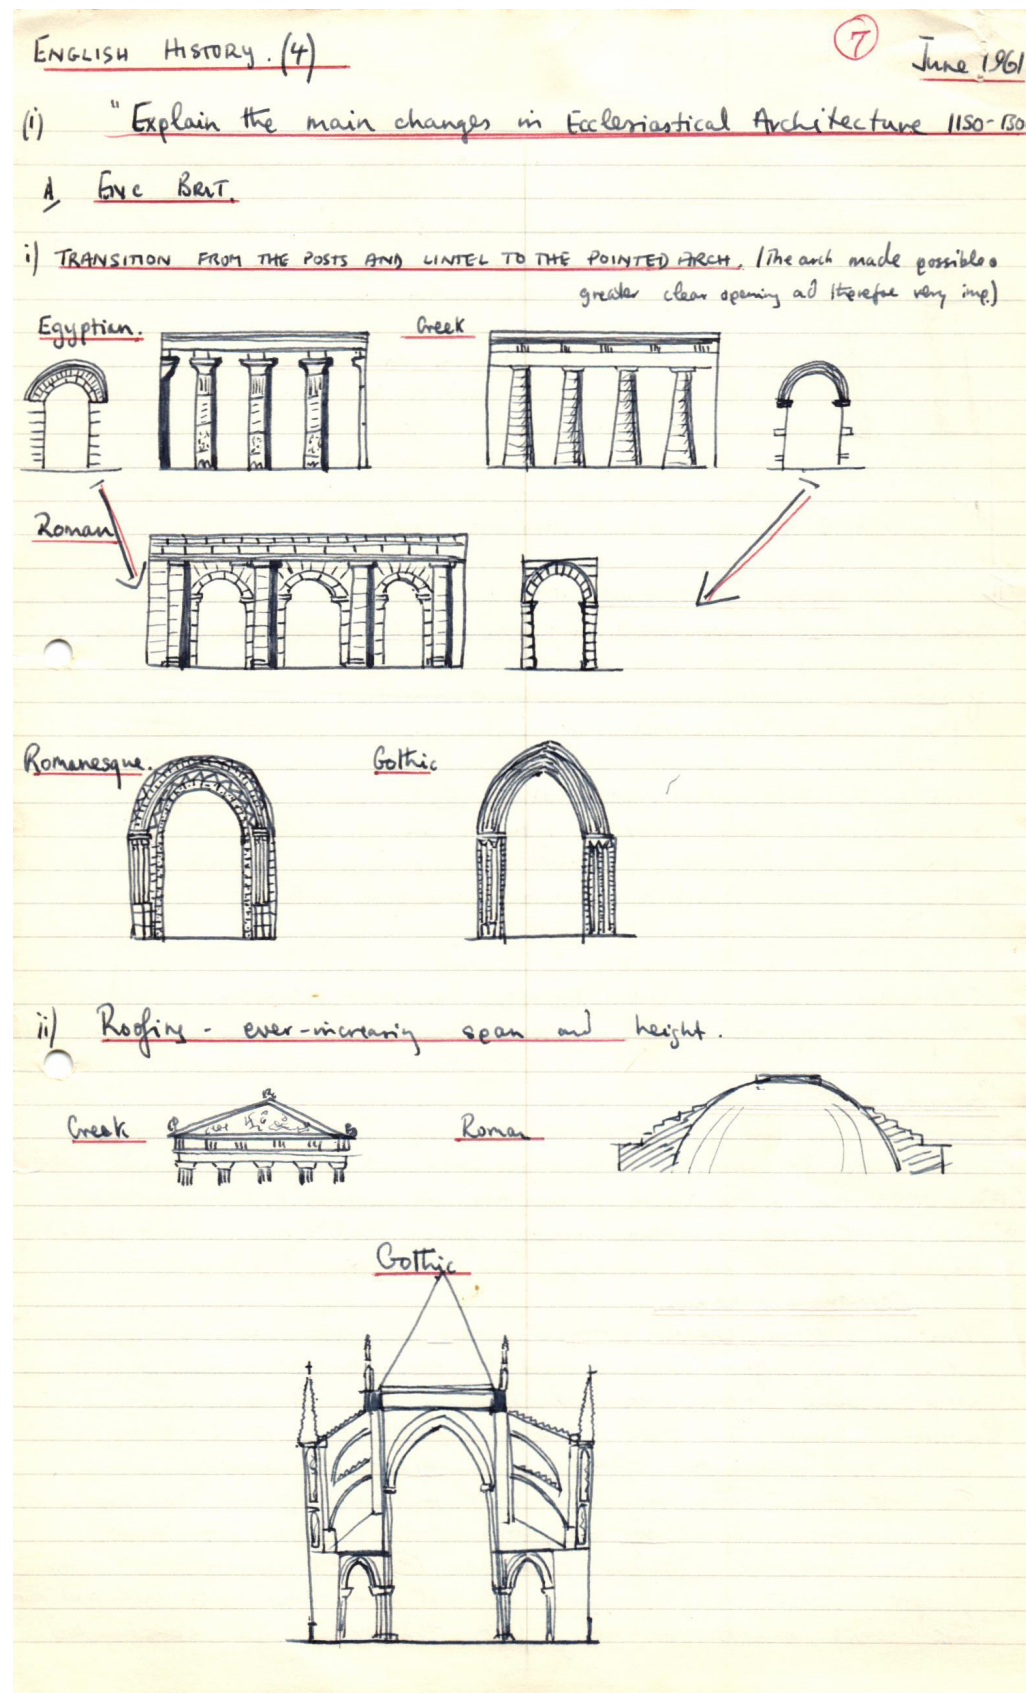 ENGLISH HISTORY. (4)
7
June 1961
(i) "Explain the main changes in Ecclesiastical Architecture 1150-130
A, ENC BRIT.
i) TRANSITION FROM THE POSTS AND LINTEL TO THE POINTED ARCH. (The arch made possible a
greater clear opening ad therefore very imp.)
Egyptian.
Greek
Roman
Romanesque.
Gothic
ii) Roofing - ever-increasing span and height.
Greek
Roman
Gothic